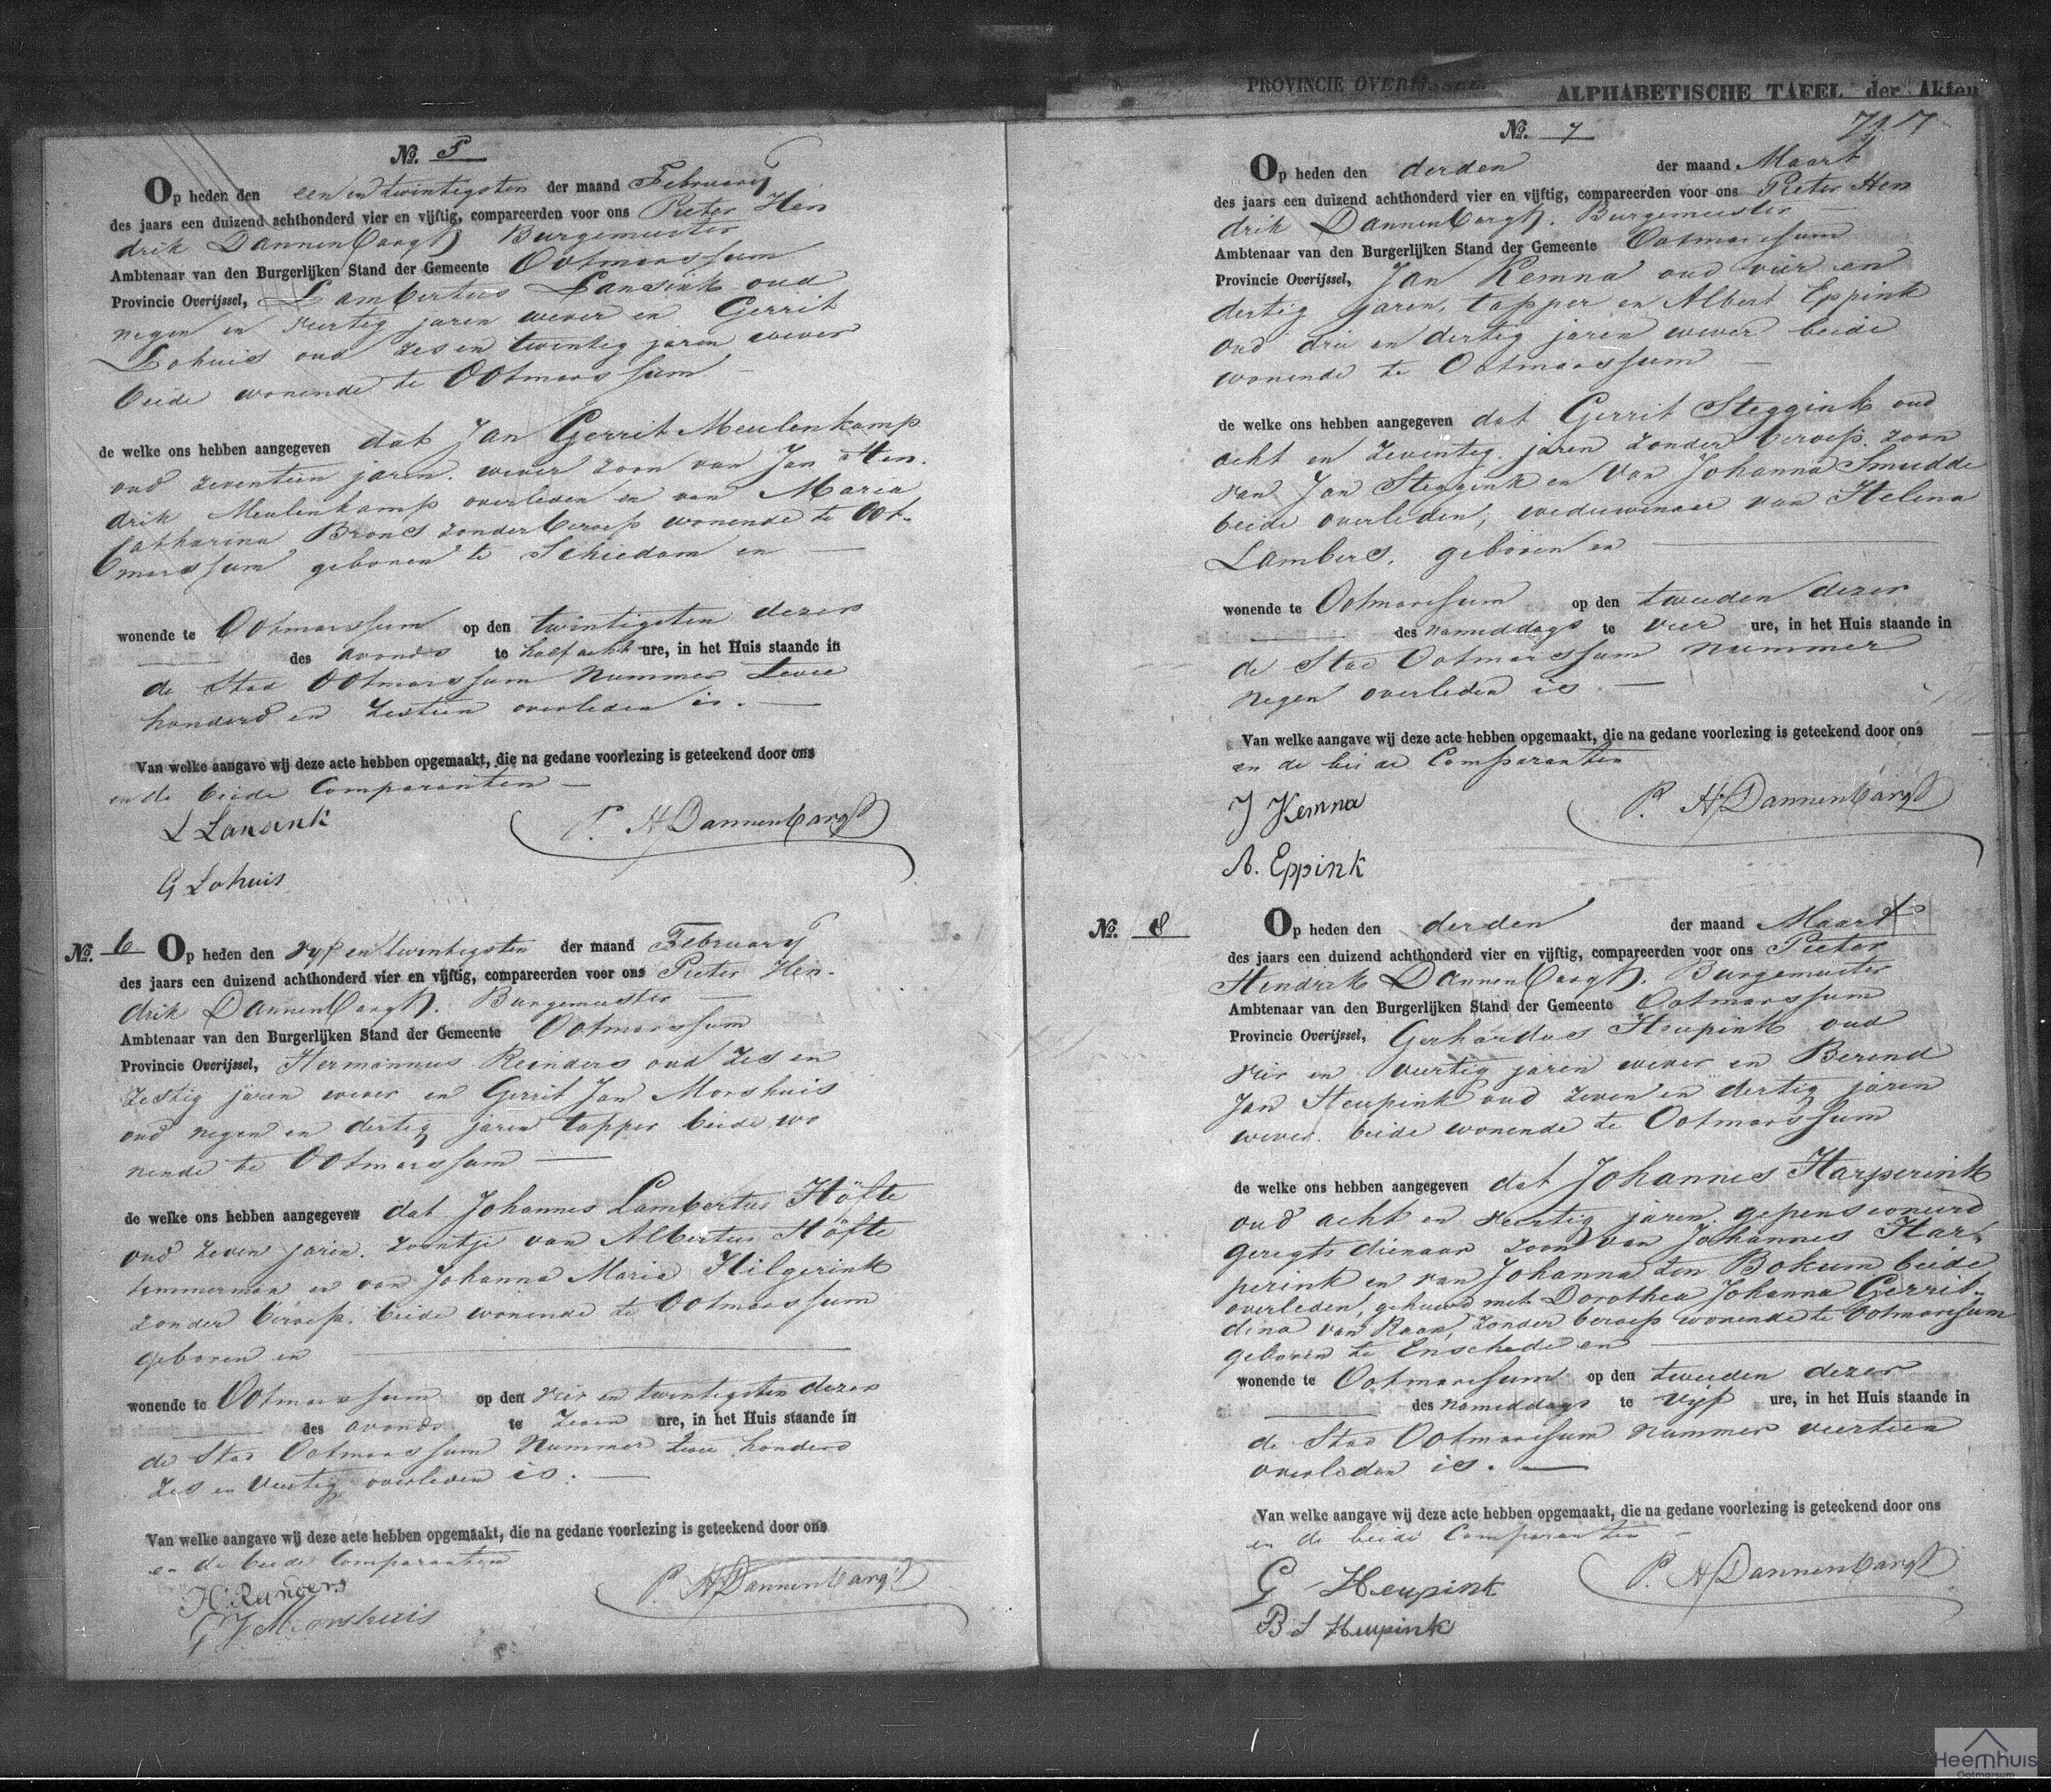 No. 5
Op heden den een en twintigsten der maand February
des jaars een duizend achthonderd vier en vijftig, compareerden voor ons Pieter Hen
drik Dannenbargh Burgemeester
Ambtenaar van den Burgerlijken Stand der Gemeente Ootmarssum
Provincie Overijssel, Lambertus Lansink oud
negen en veertig jaren wever en Gerrit
Lohuis oud zes en twintig jaren wever
beide wonende te Ootmarssum —
de welke ons hebben aangegeven dat Jan Gerrit Meulenkamp
oud zeventien jaren. wever zoon van Jan Hen.
drik Meulenkamp overleden en van Maria
Catharina Brons zonder beroep wonende te Oot-
marssum geboren te Schiedam en —
wonende te Ootmarssum op den twintigsten dezer
des avonds te half acht ure, in het Huis staande in
de Stad Ootmarssum Nummer twee
honderd en zestien overleden is. —
Van welke aangave wij deze acte hebben opgemaakt, die na gedane voorlezing is geteekend door ons
en de beide Comparanten —
L Lansink P. H Dannenbargh
G Lohuis
No. 6 Op heden den vyf en twintigsten der maand February
des jaars een duizend achthonderd vier en vijftig, compareerden voor ons Pieter Hen-
drik Dannenbargh. Burgemeester —
Ambtenaar van den Burgerlijken Stand der Gemeente Ootmarssum
Provincie Overijssel, Hermannus Reinders oud zes en
zestig jaren wever en Gerrit Jan Morshuis
oud negen en dertig jaren tapper beide wo
nende te Ootmarssum —
de welke ons hebben aangegeven dat Johannes Lambertus Höfte
oud zeven jaren. zoontje van Albertus Höfte
timmerman en van Johanna Maria Hilgerink
zonder beroep. beide wonende te Ootmarssum
geboren en —
wonende te Ootmarssum op den vier en twintigsten dezer
des avonds te zeven ure, in het Huis staande in
de Stad Ootmarssum Nummer twee honderd
zes en veertig overleden is. —
Van welke aangave wij deze acte hebben opgemaakt, die na gedane voorlezing is geteekend door ons
en de beide Comparanten
H. Reinders P. H Dannenbargh
G J Morshuis
PROVINCIE OVERIJSSEL. ALPHABETISCHE TAFEL der Akten
No. 7
Op heden den derden der maand Maart
des jaars een duizend achthonderd vier en vijftig, compareerden voor ons Pieter Hen
drik Dannenbargh. Burgemeester
Ambtenaar van den Burgerlijken Stand der Gemeente Ootmarssum
Provincie Overijssel, Jan Kemna oud vier en
dertig jaren, tapper en Albert Eppink
oud drie en dertig jaren wever beide
wonende te Ootmarssum —
de welke ons hebben aangegeven dat Gerrit Steggink oud
acht en zeventig jaren zonder beroep. zoon
van Jan Steggink en van Johanna Smudde
beide overleden, weduwenaar van Helena
Lambers, geboren en —
wonende te Ootmarssum op den tweeden dezer
des nameddags te vier ure, in het Huis staande in
de Stad Ootmarssum nummer
negen overleden is —
Van welke aangave wij deze acte hebben opgemaakt, die na gedane voorlezing is geteekend door ons
en de beide Comparanten
J Kemna P. H Dannenbargh
A. Eppink
No. 8 Op heden den derden der maand Maart
des jaars een duizend achthonderd vier en vijftig, compareerden voor ons Pieter
Hendrik Dannenbargh. Burgemeester
Ambtenaar van den Burgerlijken Stand der Gemeente Ootmarssum
Provincie Overijssel, Gerhardus Heupink oud
vier en veertig jaren wever en Berend
Jan Heupink oud zeven en dertig jaren
wever. beide wonende te Ootmarssum
de welke ons hebben aangegeven dat Johannes Harperink
oud acht en veertig jaren. gepensioneerd
geregts dienaar zoon van Johannes Har-
perink en van Johanna ten Bokum beide
overleden, gehuwd met Dorothea Johanna Gerrit-
dina van Raan, zonder beroep wonende te Ootmarssum
geboren te Enschede en —
wonende te Ootmarssum op den tweeden dezer
des nameddags te vijf ure, in het Huis staande in
de Stad Ootmarssum nummer veertien
overleden is. —
Van welke aangave wij deze acte hebben opgemaakt, die na gedane voorlezing is geteekend door ons
en de beide Comparanten —
G Heupink P. H Dannenbargh
B J Heupink
Heemhuis
Ootmarsum